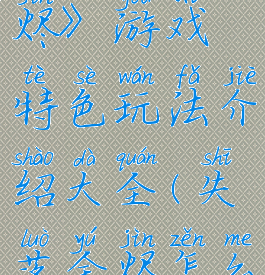 烬》 游戏
tè sè wán fǎ jiè
特色玩法介
shào dà quán shī
绍大全(失
luò yú jìn zěn me
落余烬怎么